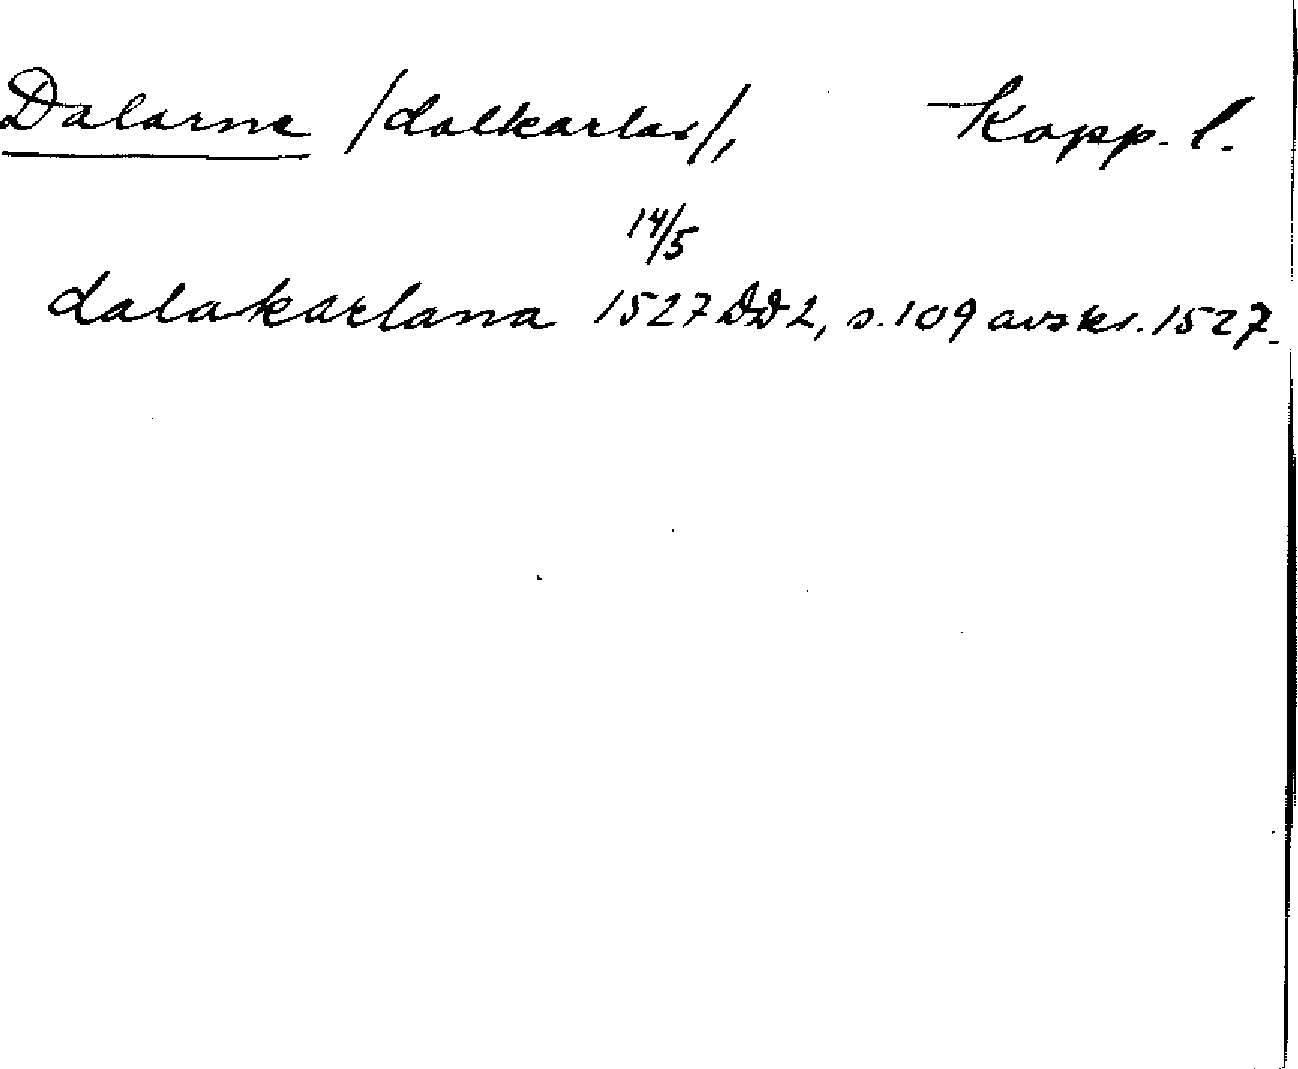 Dalarne /dalkarlar/, Kopp. l.
14/5
dalakarlana 1527 DD 2, s. 109 avskr. 1527.